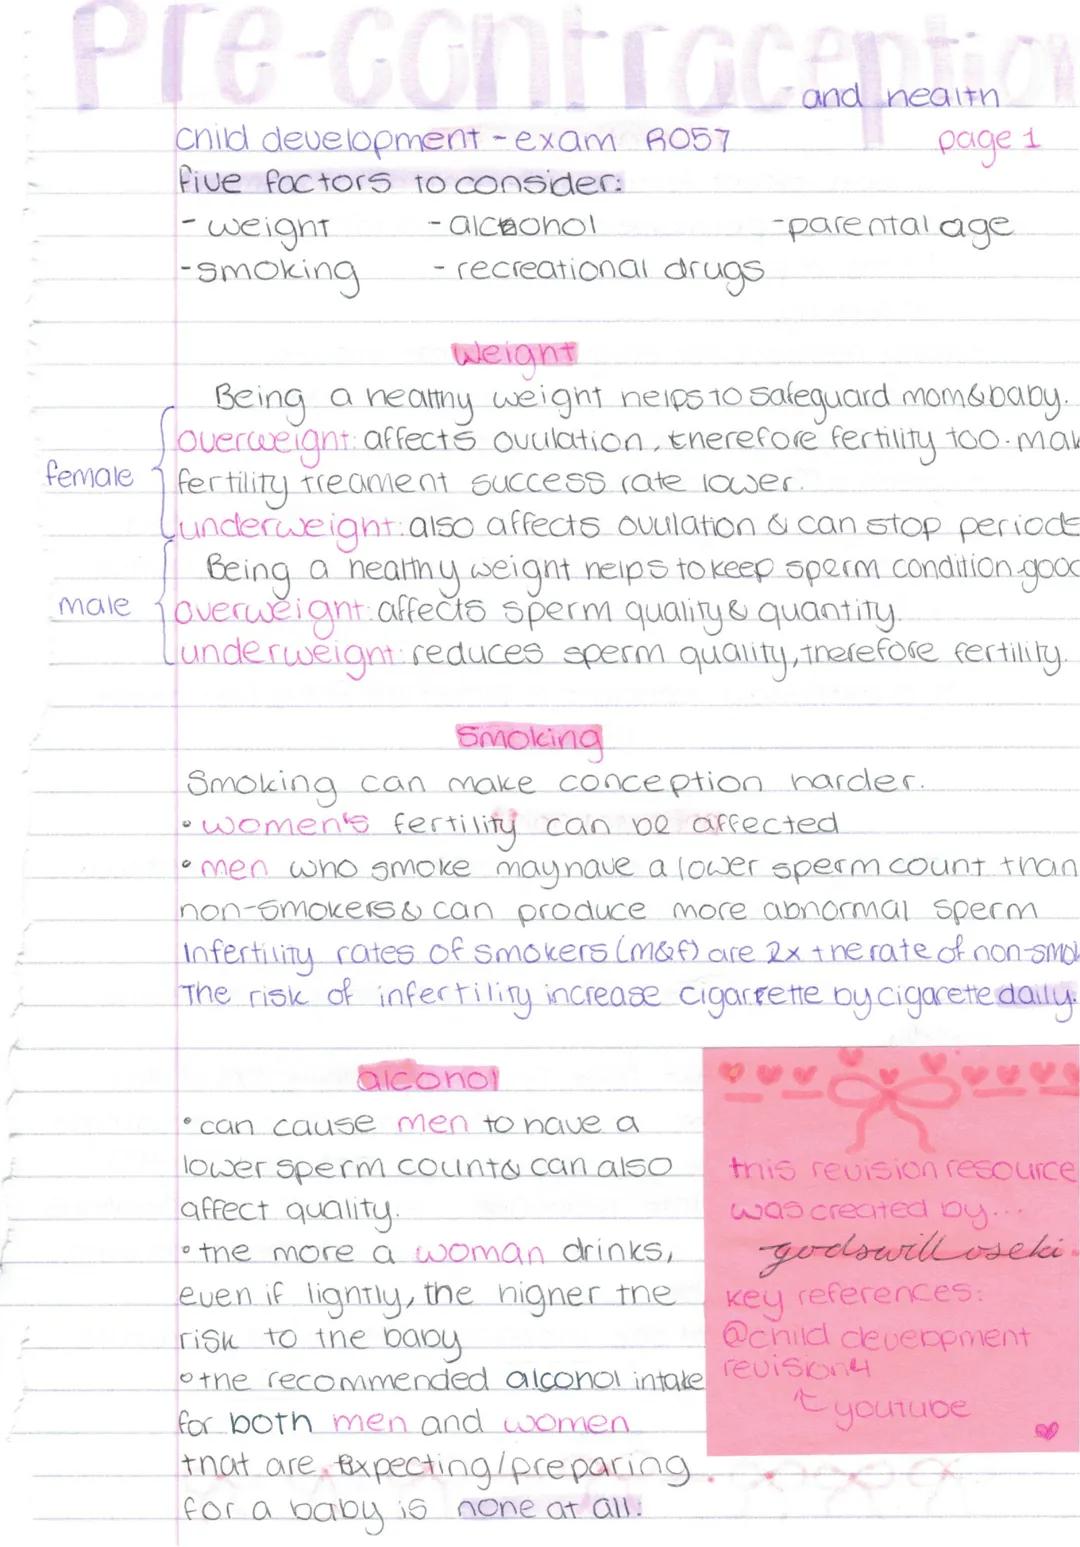 Pre-contraception
and health
child development - exam R057
page 1
five factors to consider:
- weight - alcohol - parental age
- smoking - recreational drugs
weight
Being a healthy weight helps to safeguard mom & baby.
overweight: affects ovulation, therefore fertility too. mak
female
fertility treament success rate lower.
underweight: also affects ovulation & can stop periods
Being a healthy weight helps to keep sperm condition good
male
overweight: affects sperm quality & quantity.
underweight: reduces sperm quality, therefore fertility.
Smoking
Smoking can make conception harder.
• women's fertility can be affected
• men who smoke may have a lower sperm count than
non-smokers & can produce more abnormal sperm
Infertility rates of smokers (m&f) are 2x the rate of non-smok
The risk of infertility increase cigarrette by cigarette daily.
alcohol
• can cause men to have a
lower sperm count & can also
affect quality.
• the more a woman drinks,
even if lightly, the higher the
risk to the baby
• the recommended alcohol intake
for both men and women
that are expecting/preparing
for a baby is none at all.
this revision resource
was created by...
godswill oseki.
key references:
@child development
revision4
↑ youtube